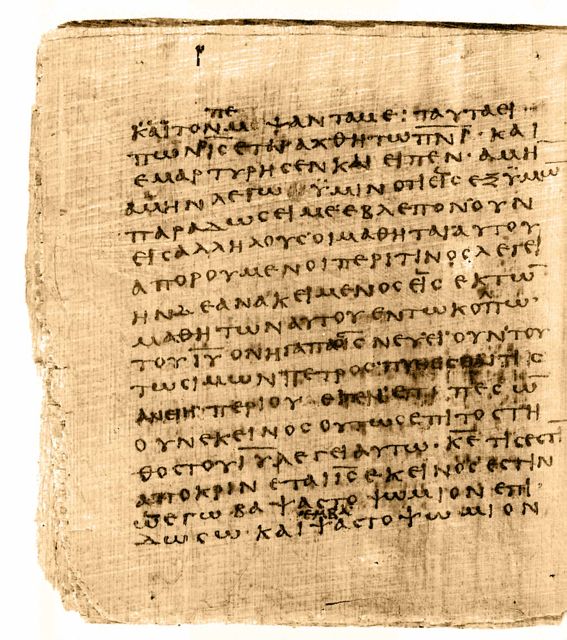 ΠΕ
ΚΑΪΤΟΝΜΨΑΝΤΑΜΕ: ΤΑΥΤΑΕΙ
ΠΩΝΙ̅Ϲ̅ΕΤΑΡΑΧΘΗΤΩΠ̅Ν̅Ι̅· ΚΑΙ
ΕΜΑΡΤΥΡΗϹΕΝΚΑΙΕΙΠΕΝ· ΑΜΗ
ΑΜΗΝΛΕΓΩΫΜΙΝΟΤΙΕΙϹΕΞΥΜΩ̅
ΠΑΡΑΔΩϹΕΙΜΕΕΒΛΕΠΟΝΟΥΝ
ΕΙϹΑΛΛΗΛΟΥϹΟΙΜΑΘΗΤΑΙΑΥΤΟΥ
ΑΠΟΡΟΥΜΕΝΟΙΠΕΡΙΤΙΝΟϹΛΕΓΕΙ
ΗΝΔΕΑΝΑΚΕΙΜΕΝΟϹΕΙϹΕΚΤΩ̅
ΜΑΘΗΤΩΝΑΥΤΟΥΕΝΤΩΚΟΛΠΩ·
ΤΟΥΙ̅Υ̅ΟΝΗΓΑΠΑΙ̅Ϲ̅ΝΕΥΕΙΟΥΝΤΟΥ
ΤΩϹΙΜΩΝΠΕΤΡΟϹΠΥΘΕϹΘΑΙΤΙϹ
ΑΝΕΙΗ·ΠΕΡΙΟΥ· ΕΙΠΕΝ ΕΠΙΠΕϹΩ̅
ΟΥΝΕΚΕΙΝΟϹΟΥΤΩϹΕΠΙΤΟϹΤΗ
ΘΟϹΤΟΥΙ̅Υ̅ΛΕΓΕΙΑΥΤΩ· Κ̅Ε̅ΤΙϹΕϹΤΙ
ΑΠΟΚΡΙΝΕΤΑΙΙ̅Ϲ̅ΕΚΕΙΝΟϹΕϹΤΙΝ
ΩΕΓΩΒΑΨΑϹΤΟΨΩΜΙΟΝΕΠΙ
ΕΜΒΑ
ΔΩϹΩ· ΚΑΙΨΑϹΤΟΨΩΜΙΟΝ